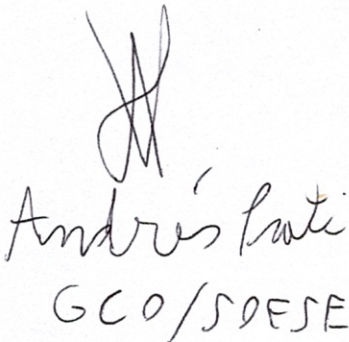 Andrés Prati
GCO/SOESE